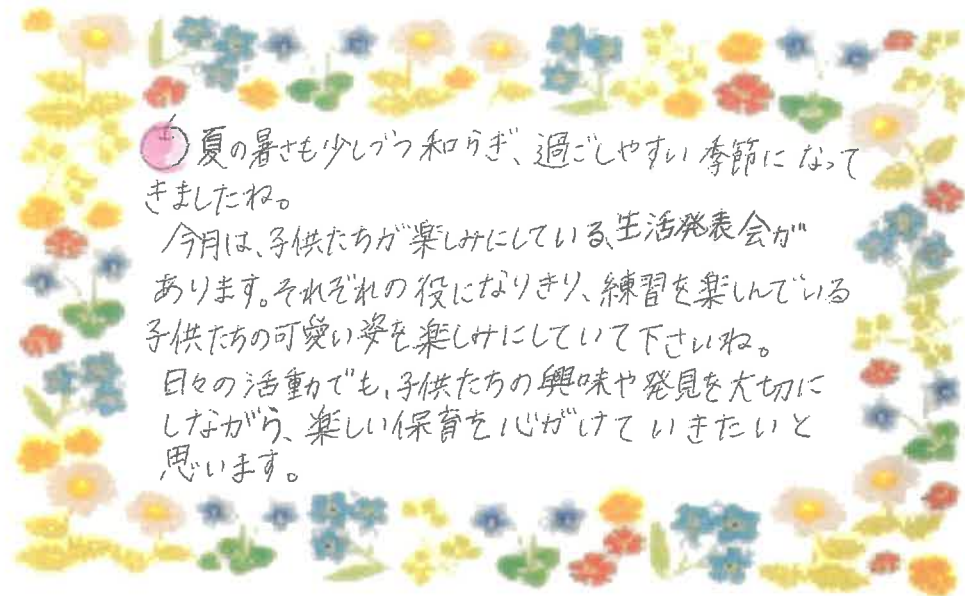 夏の暑さも少しづつ和らぎ、過ごしやすい季節になって
きましたね。
今月は、子供たちが楽しみにしている、生活発表会が
あります。それぞれの役になりきり、練習を楽しんでいる
子供たちの可愛い姿を楽しみにしていて下さいね。
日々の活動でも、子供たちの興味や発見を大切に
しながら、楽しい保育を心がけていきたいと
思います。